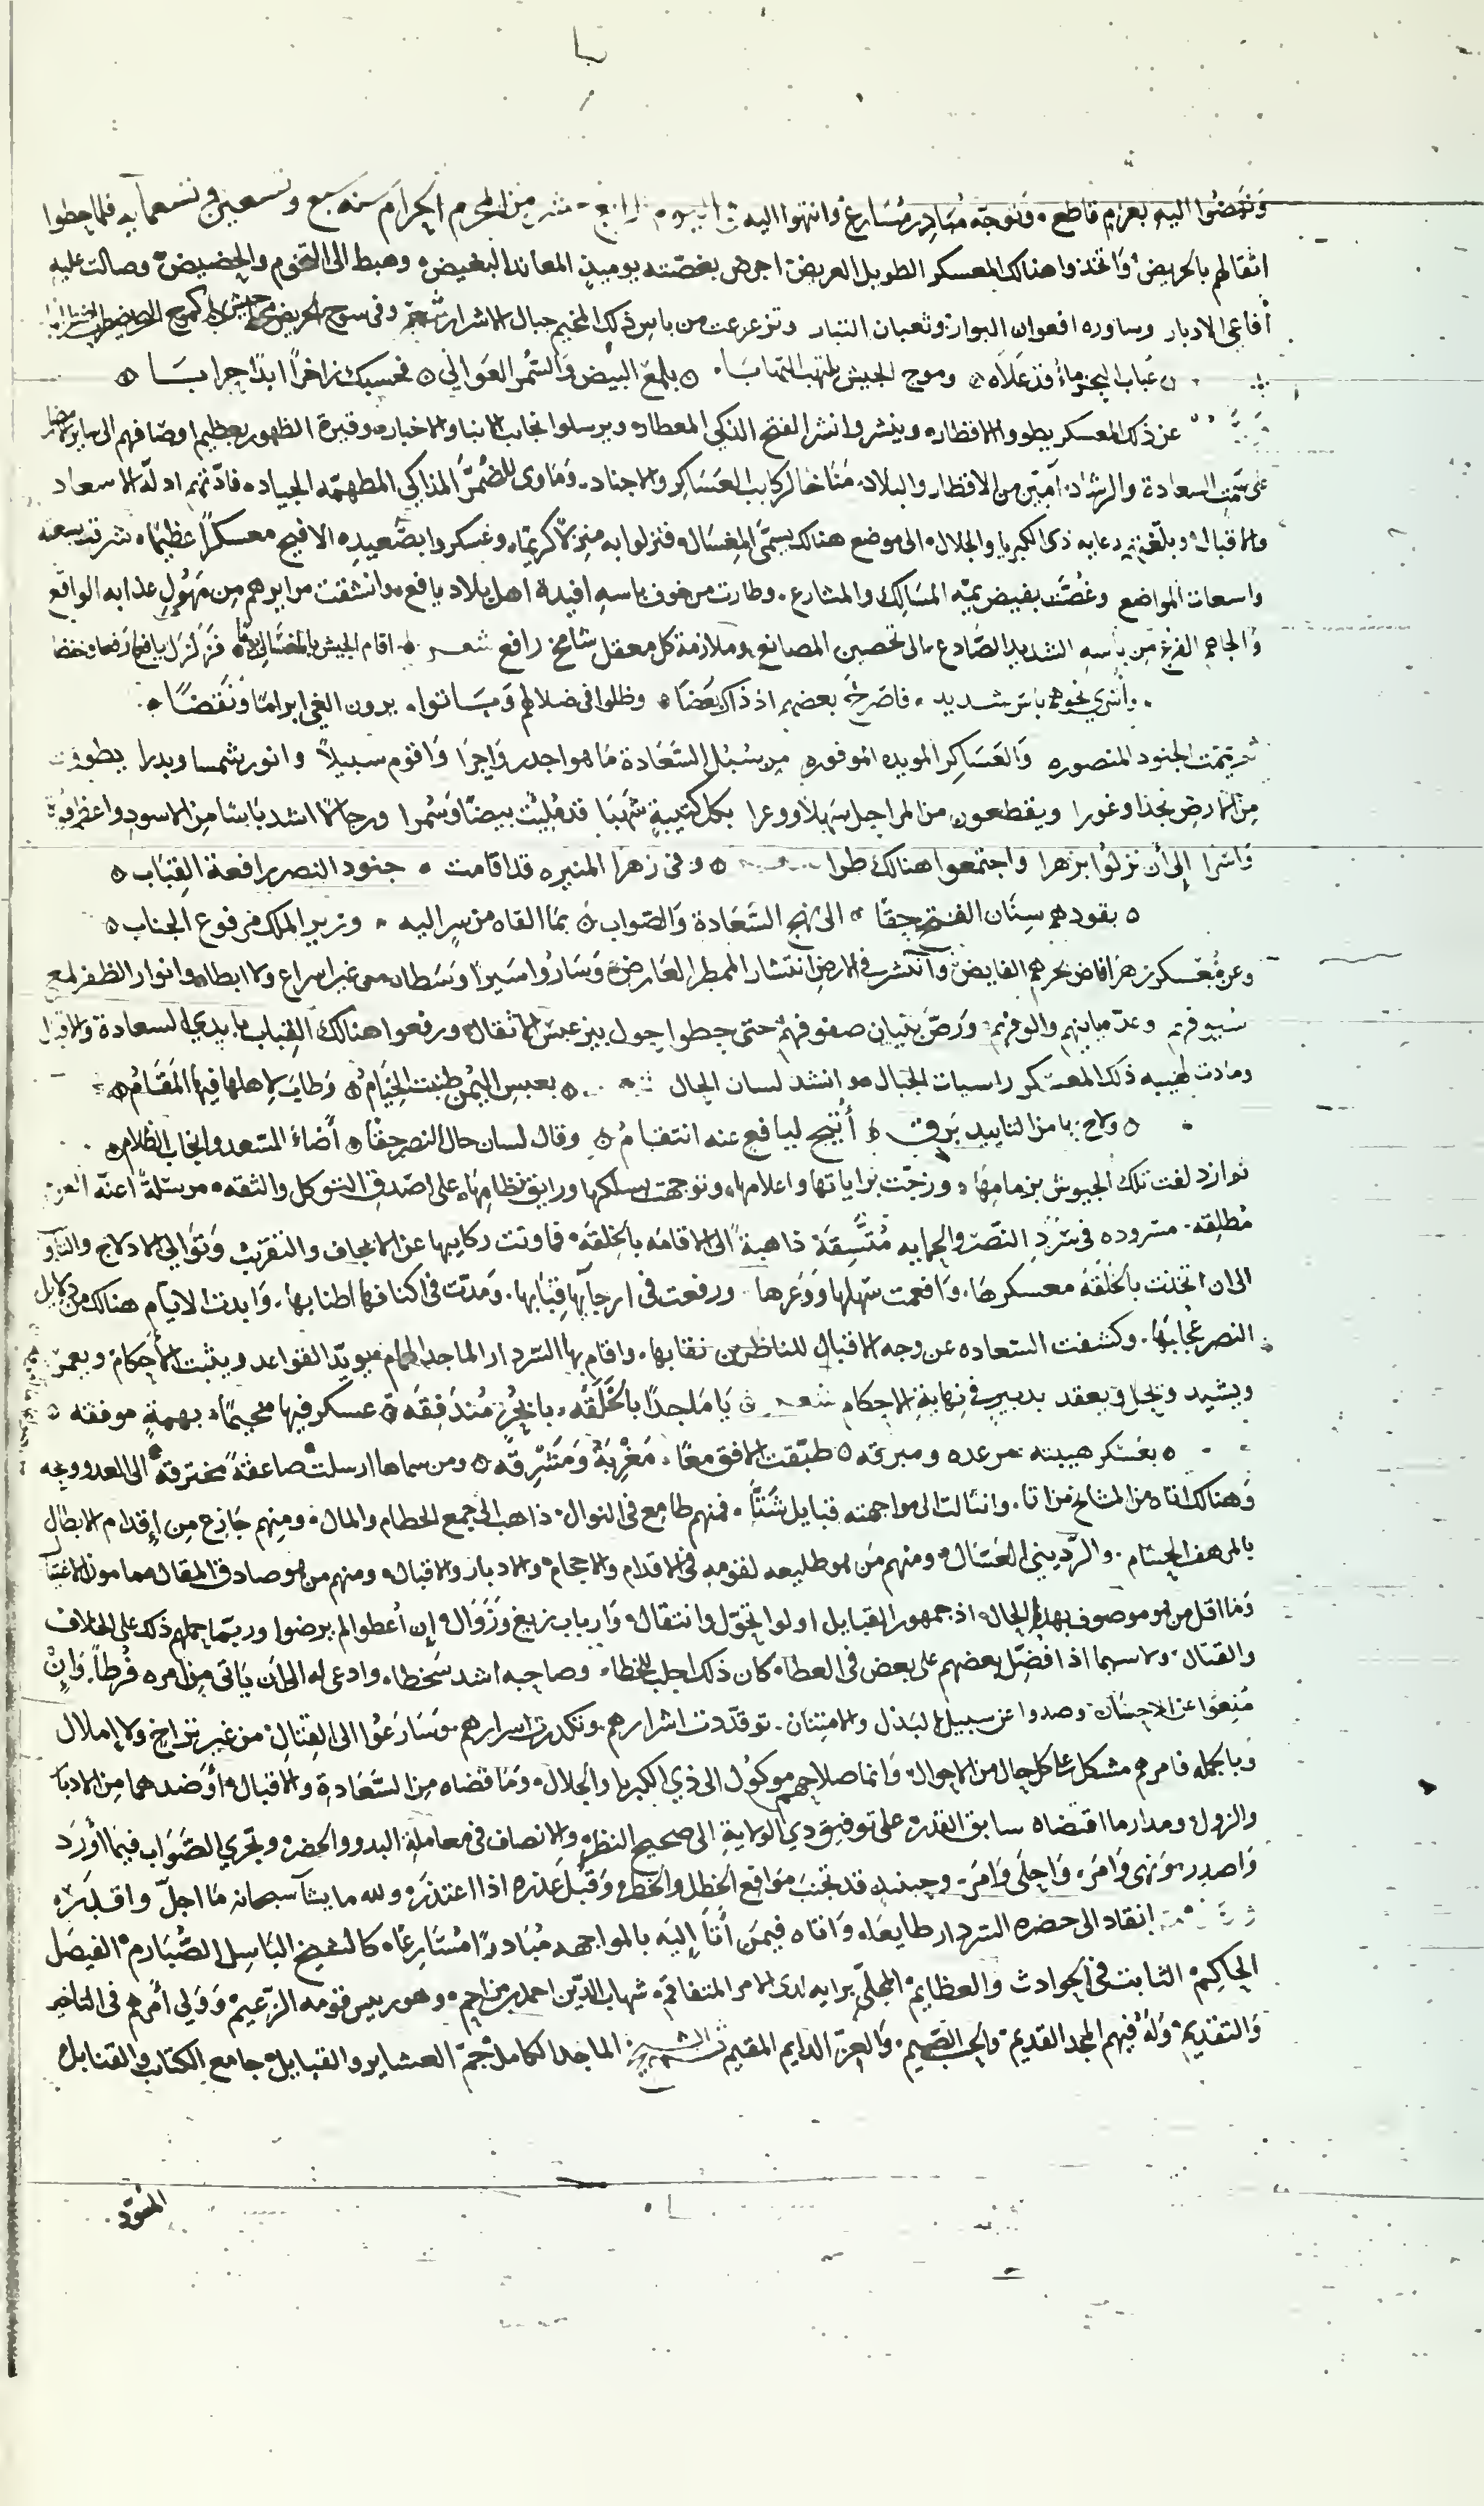 ونهضوا اليه بعزم قاطع وتوجه مبادر مسارع وانتهوا اليه في اليوم الرابع عشر من المحرم الحرام سنه سبع وتسعين وتسعمايه فلما حطوا
اثقالهم بالحريض واتخذوا هنالك المعسكر الطويل العريض اجرض بغصته يوميذ المعاند البغيض وهبط الى التخوم والحضيض وصالت عليه
افاعي الادبار وساوره افعوان البوار وثعبان التبار وتزعزعت من باس ذلك المخيم جبال الاشرار شعر وفي سوح الحريض
عباب البحر ماء قد علاه وموج الجيش يلتهب التهابا بلمع البيض والسمر العوالي فحسبك زاخرا ابدا حرابا
عن ذلك المعسكر يطووا الاقطار وينشروا نشر الفتح الذكي المعطار ويرسلوا نجايب الانبا والاخبار وقبرة الظهور بعظيم اوصافهم الى ساير
على سمت السعادة والرشاد آمين من الاقطار والبلاد مناخا لركايب العساكر والاجناد وماوى للضمر المذاكي المطهمه الجياد فادتهم ادلة الاسعاد
والاقبال وبلغتهم رعايه ذي الكبريا والجلال الى موضع هنالك يسمى المغسال فنزلوا به منزلا كريما وعسكروا بصعيده الافيح معسكرا عظيما شرقت بسعته
واسعات المواضع وغصت بفيض يمه المسالك والمشارع وطارت من خوف باسه افيدة اهل بلاد يافع وانشقت مرايرهم من مهول عذابه الواقع
والجاهم الفزع من باسه الشديد الصادع الى تحصين المصانع وملازمة كل معقل شامخ رافع شعر اقام الجيش بالمغسال فزلزل يافعا رفعا وخفضا
وأسرى نحوهم باس شديد فاصرخ بعضهم اذ ذاك بعضا وظلوا في ضلالهم وباتوا يرون الغي ابراما ونقضا
ثم تيممت الجنود المنصوره والعساكر المويده الموفوره من سبل السعادة ما هو اجدر واجرا واقوم سبيلا وانور شمسا وبدرا يطوون
من الارض نجدا وغورا ويقطعون من المراحل سهلا ووعرا بكل كتيبة شهبا قد مليت بيضا وسمرا ورجالا اشد باسا من الاسود واعظم قوة
واسرا الى أن نزلوا بزهرا واجتمعوا هنالك طرا وفي زهرا المنيره قد اقامت جنود النصر رافعة القباب
يقودهم سنان الفتح حقا الى نهج السعادة والصواب بما القاه من سر اليه وزير الملك مرفوع الجناب
وعن معسكر زهرا فاض بحرهم الفايض وانتشر في الارض انتشار الممطر العارض وساروا سيرا وسطا من غير اسراع ولا ابطا وانوار الظفر لمع
سيوفهم وعد مايتهم والوفهم ورص بنيان صفوفهم حتى حطوا حول بيز عبس الاثقال ورفعوا هنالك القباب بايدي السعادة والاقبال
ومادت لهيبه ذلك المعسكر راسيات الجبال وانشد لسان الحال بعبس اليمن طنبت الخيام وطاب لاهلها فيها المقام
ولاح بها من التاييد برق أتيح ليافع عنه انتقام وقال لسان حال النصر حقا أضاء السعد وانجاب الظلام
ثم ازدلفت تلك الجيوش بزمامها وزجت براياتها واعلامها وتوجهت بسلكها ورايق نظامها على اصدق التوكل والثقه مرسلة اعنه العزم
مطلقه مسروده في سرد النصر والحمايه متسقة ذاهبة الى الاقامه بالخلقه فما ونت ركايبها عن الايجاف والتقريب وتوالي الادلاج والتاويب
الى ان اتخذت بالخلقه معسكرها وافعمت سهلها ووعرها ورفعت في ارجايها قبابها ومدت في اكنافها اطنابها وابدت الايام هنالك من دلايل
النصر عجابها وكشفت السعاده عن وجه الاقبال للناظرين نقابها واقام بها السردار الماجد الهمام يويد القواعد ويثبت الأحكام ويعمر
ويشيد ويحل ويعقد بدبير في نهاية الاحكام شعر يا ماجدا بالخلقه بابحر مندفقه عسكر فيها مخيما بهمة موفقه
بعسكر هيبته مرعده ومبرقه طبقت الافق معا مغربه ومشرقه ومن سماها ارسلت صاعقة مخترقة الى العدو
وهنالك اتاه من المشايخ من اتا وانثالت الى مواجهته قبايل شتا فمنهم طامع في النوال ذاهب الى جمع الحطام والمال ومنهم جازع من إقدام الابطال
بالمرهف الحسام والرديني العسال ومنهم من هو طليعه لقومه في الاقدام والاحجام والادبار والاقبال ومنهم من هو صادق المقال مامون الاغتيال
وما اقل من هو موصوف بهذه الحال اذ جمهور القبايل اولوا تحول وانتقال وارباب زيغ وزوال إن أعطوا لم يرضوا وربما حملهم ذلك على الخلاف
والقتال ولا سيما اذا فضل بعضهم على بعض في العطا كان ذلك اجلب للخطا وصاحبه اشد سخطا وادعى له الى أن ياتي من امره فرطا وان
منعوا عن الاحسان وصدوا عن سبيل البذل والامتنان توقدت اشرارهم وتكدرت اسرارهم وسارعوا الى القتال من غير تراخ ولا إملال
وبالجمله فامرهم مشكل على كل حال من الاحوال وانما صلاحهم موكول الى ذي الكبريا والجلال وما قضاه من السعادة والاقبال أو ضدهما من الادبار
والزوال ومدار ما اقتضاه سابق القدر على توفيق ذي الولاية الى صحيح النظر والانصاف في معاملة البدو والحضر وتحري الصواب فيما أورد
واصدر ونهى وامر واحلى وامر وحينيذ قد تجنب مواقع الخطل والخطر وقبل عذره اذا اعتذر ولله ما يشا سبحانه ما اجل واقدر
انقاد الى حضره السردار طايعا وافاه فيمن أتا إليه بالمواجهه مبادرا مسارعا كالشيخ الباسل الصارم الفيصل
الحاكم الثابت في الحوادث والعظايم المجلي برايه لدى الامر المتفاقم شهاب الدين احمد بن مزاحم وهو رييس قومه الزعيم وولي أمرهم في التاخير
والتقديم وله فيهم المجد القديم والحسب الصميم والعز الدايم المقيم الماجد الكامل جم العشاير والقبايل جامع الكتايب والقنابل
المسود